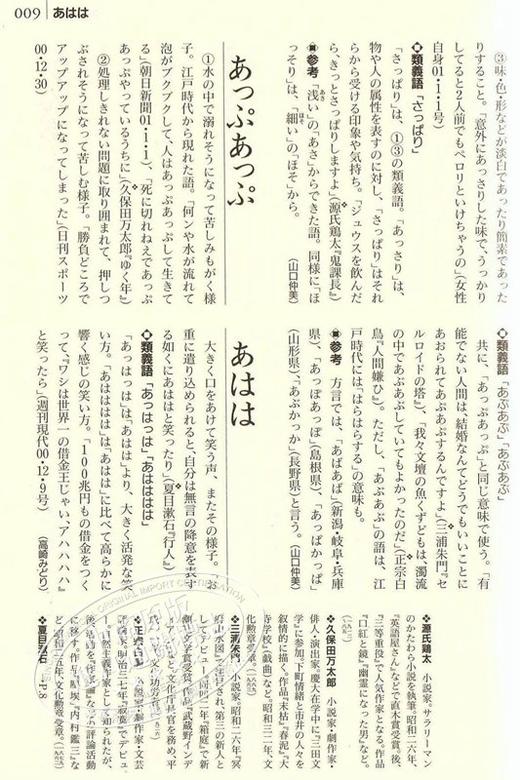 009 あはは
③味・色・形などが淡白であったり簡素であった
りすること。「意外にあっさりした味で、うっかり
してると2人前でもペロリといけちゃうの」(女性
自身01・1・1号)
■類義語「さっぱり」
「さっぱり」は、①③の類義語。「あっさり」は、
物や人の属性を表すのに対し、「さっぱり」はそれ
らから受ける印象や気持ち。「ジュウスを飲んだ
ら、きっとさっぱりしますよ」(源氏鶏太『鬼課長』)
■参考 「浅い」の「あさ」からできた語。同様に「ほ
っそり」は、「細い」の「ほそ」から。 (山口仲美)
あっぷあっぷ
①水の中で溺れそうになって苦しみもがく様
子。江戸時代から現れた語。「何ンや水が流れて
泡がブクブクして、人はあっぷあっぷして生きて
る」(朝日新聞01・1・1)、「死に切れねえであっぷ
あっぷやっているうちに」(久保田万太郎『ゆく年』)
②処理しきれない問題に取り囲まれて、押しつ
ぶされそうになって苦しむ様子。「勝負どころで
アップアップになってしまった」(日刊スポーツ
00・12・30)
■類義語「あぶあぶ」「あぷあぷ」
共に、「あっぷあっぷ」と同じ意味で使う。「有
能でない人間は、結婚なんてどうでもいいことに
あおられてあぷあぷするんですよ」(三浦朱門『セ
ルロイドの塔』)、「我々文壇の魚くずどもは、濁流
の中であぶあぶしていてもよかったのだ」(正宗白
鳥『人間嫌ひ』)。ただし、「あぶあぶ」の語は、江
戸時代には「はらはらする」の意味も。
■参考 方言では、「あばあば」(新潟・岐阜・兵庫
県)、「あっぽあっぽ」(島根県)、「あっぱかっぱ」
(山形県)、「あぶかっか」(長野県)と言う。 (山口仲美)
あはは
大きく口をあけて笑う声、またその様子。「お
重に遣り込められると、自分は無言の降意を表す
る如くにあははと笑ったり」(夏目漱石『行人』)
■類義語「あっはっは」「あはははは」
「あっはっは」は「あはは」より、大きく活発な笑
い方。「あはははは」は「あはは」に比べて高らかに
響く感じの笑い方。「100兆円もの借金をつく
って、『ワシは世界一の借金王じゃい、アハハハハ』
と笑ったら」(週刊現代00・12・9号)
(高崎みどり)
❖源氏鶏太 小説家。サラリーマン
のかたわら小説を執筆。昭和二六年、
『英語屋さん』などで直木賞受賞。後、
『三等重役』で人気作家となる。作品
『口紅と鏡』『幽霊になった男』など。
❖久保田万太郎 小説家・劇作家・
俳人・演出家。慶大在学中に『三田文
学』に参加。下町情緒と市井の人々を
叙情的に描く。作品『末枯』『春泥』『大
寺学校』(戯曲)など。昭和三二年、文
化勲章受章。
❖三浦朱門 小説家。昭和二六年『冥
してデビュー。